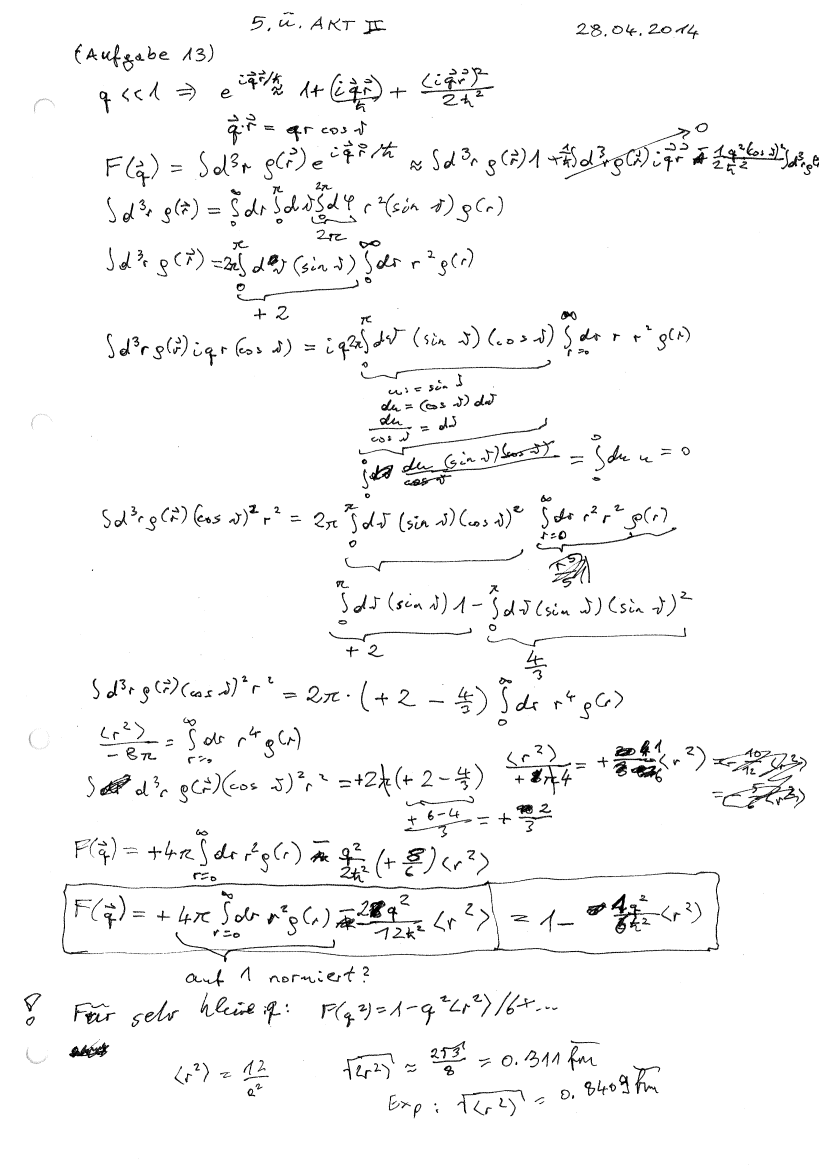 5. ü. AKT II 28.04.2014
(Aufgabe 13)
q <<1 ⇒ e^{i q⃗ r⃗/ħ} ≈ 1 + (i q⃗ r⃗)/ħ + (i q⃗ r⃗)²/2ħ²
q⃗·r⃗ = qr cos ϑ
F(q⃗) = ∫d³r ρ(r⃗) e^{i q⃗ r⃗/ħ} ≈ ∫d³r ρ(r⃗) 1 + 1/ħ ∫d³r ρ(r⃗) i q⃗ r⃗ → 0 - 1q²(cos ϑ)²/2ħ² ∫d³r ρ
∫d³r ρ(r⃗) = ∫₀^∞ dr ∫₀^π dϑ ∫₀^{2π} dφ r² (sin ϑ) ρ(r)
2π
∫d³r ρ(r⃗) = 2π ∫₀^π dϑ (sin ϑ) ∫₀^∞ dr r² ρ(r)
+ 2
∫d³r ρ(r⃗) i q r (cos ϑ) = i q 2π ∫₀^π dϑ (sin ϑ) (cos ϑ) ∫_{r=0}^∞ dr r r² ρ(r)
u := sin ϑ
du = (cos ϑ) dϑ
du/cos ϑ = dϑ
∫₀^0 du (sin ϑ)(cos ϑ)/cos ϑ = ∫₀^0 du u = 0
∫d³r ρ(r⃗) (cos ϑ)² r² = 2π ∫₀^π dϑ (sin ϑ) (cos ϑ)² ∫_{r=0}^∞ dr r² r² ρ(r)
∫₀^π dϑ (sin ϑ) 1 - ∫₀^π dϑ (sin ϑ) (sin ϑ)²
+ 2 4/3
∫d³r ρ(r⃗) (cos ϑ)² r² = 2π · (+ 2 - 4/3) ∫₀^∞ dr r⁴ ρ(r)
⟨r²⟩/-8π = ∫_{r=0}^∞ dr r⁴ ρ(r)
∫ d³r ρ(r⃗) (cos ϑ)² r² = +2π (+ 2 - 4/3) ⟨r²⟩/+π4 = + 1/6 ⟨r²⟩
+ 6-4/3 = + 2/3
F(q⃗) = +4π ∫_{r=0}^∞ dr r² ρ(r) - q²/2ħ² (+ 8/6) ⟨r²⟩
F(q⃗) = + 4π ∫_{r=0}^∞ dr r² ρ(r) - 2q²/12ħ² ⟨r²⟩ = 1 - 1q²/6ħ² ⟨r²⟩
auf 1 normiert?
! Für sehr kleine q: F(q²) = 1 - q²⟨r²⟩/6 + ...
⟨r²⟩ = 12/a² √⟨r²⟩ ≈ 2√3/8 = 0.311 fm
Exp: √⟨r²⟩ = 0.8409 fm